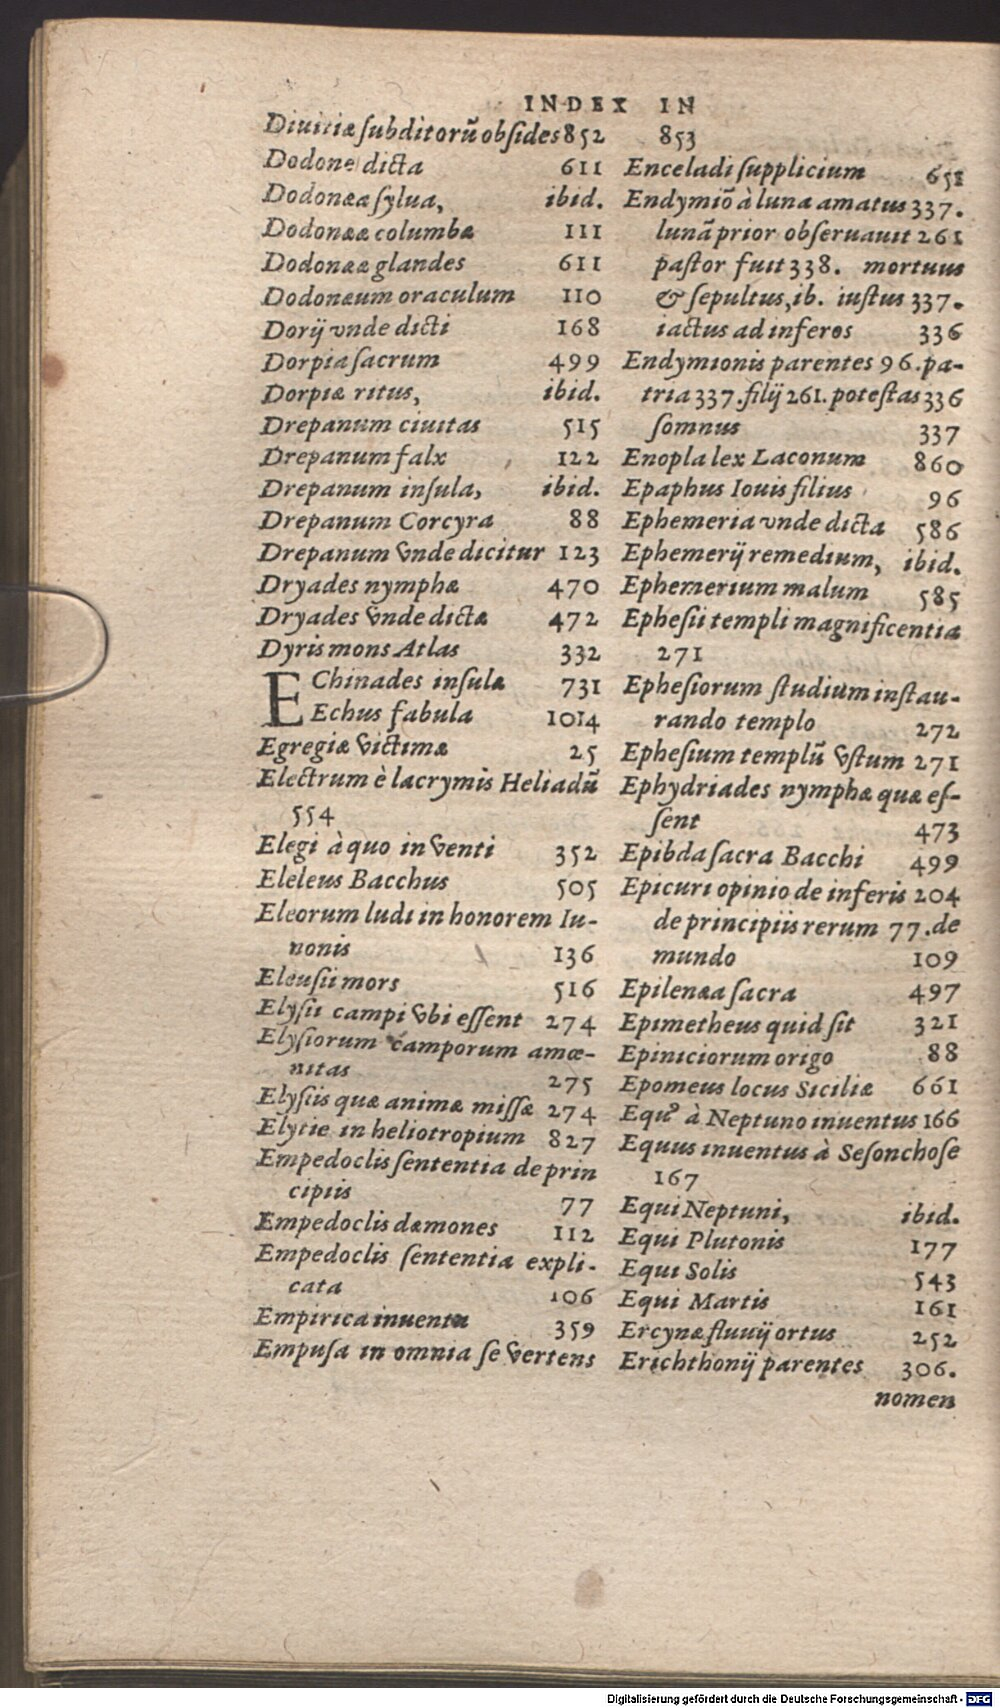 INDEX IN
Diuitiæ subditorū obsides 852
Dodone dicta 611
Dodonæa sylua, ibid.
Dodonææ columbæ 111
Dodonææ glandes 611
Dodonæum oraculum 110
Dorij vnde dicti 168
Dorpia sacrum 499
Dorpiæ ritus, ibid.
Drepanum ciuitas 515
Drepanum falx 122
Drepanum insula, ibid.
Drepanum Corcyra 88
Drepanum vnde dicitur 123
Dryades nymphæ 470
Dryades vnde dictæ 472
Dyris mons Atlas 332
EChinades insulæ 731
Echus fabula 1014
Egregiæ victimæ 25
Electrum è lacrymis Heliadū
554
Elegi à quo inuenti 352
Eleleus Bacchus 505
Eleorum ludi in honorem Iu-
nonis 136
Eleusii mors 516
Elysii campi vbi essent 274
Elysiorum camporum amœ-
nitas 275
Elysiis quæ animæ missæ 274
Elytie in heliotropium 827
Empedoclis sententia de prin
cipiis 77
Empedoclis dæmones 112
Empedoclis sententia expli-
cata 106
Empirica inuenta 359
Empusa in omnia se vertens
853
Enceladi supplicium 651
Endymiō à luna amatus 337.
lunā prior obseruauit 261
pastor fuit 338. mortuus
& sepultus, ib. iustus 337.
iactus ad inferos 336
Endymionis parentes 96. pa-
tria 337. filij 261. potestas 336
somnus 337
Enopla lex Laconum 860
Epaphus Iouis filius 96
Ephemeria vnde dicta 586
Ephemerij remedium, ibid.
Ephemerium malum 585
Ephesii templi magnificentia
271
Ephesiorum studium instau-
rando templo 272
Ephesium templū vstum 271
Ephydriades nymphæ quæ es-
sent 473
Epibda sacra Bacchi 499
Epicuri opinio de inferis 204
de principiis rerum 77. de
mundo 109
Epilenæa sacra 497
Epimetheus quid sit 321
Epiniciorum origo 88
Epomeus locus Siciliæ 661
Equꝰ à Neptuno inuentus 166
Equus inuentus à Sesonchose
167
Equi Neptuni, ibid.
Equi Plutonis 177
Equi Solis 543
Equi Martis 161
Ercynæ fluuij ortus 252
Erichthonij parentes 306.
nomen
Digitalisierung gefördert durch die Deutsche Forschungsgemeinschaft - DFG